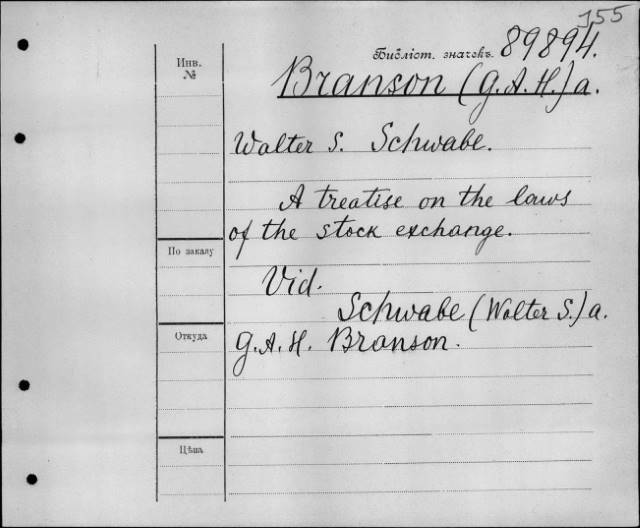 155
Инв. №
Библіот. значекъ. 89894.
Branson (G. A. H.) a.
Walter S. Schwabe.
A treatise on the laws
of the stock exchange.
По заказу
Vid.
Schwabe (Walter S.) a.
Откуда
G. A. H. Branson.
Цѣна